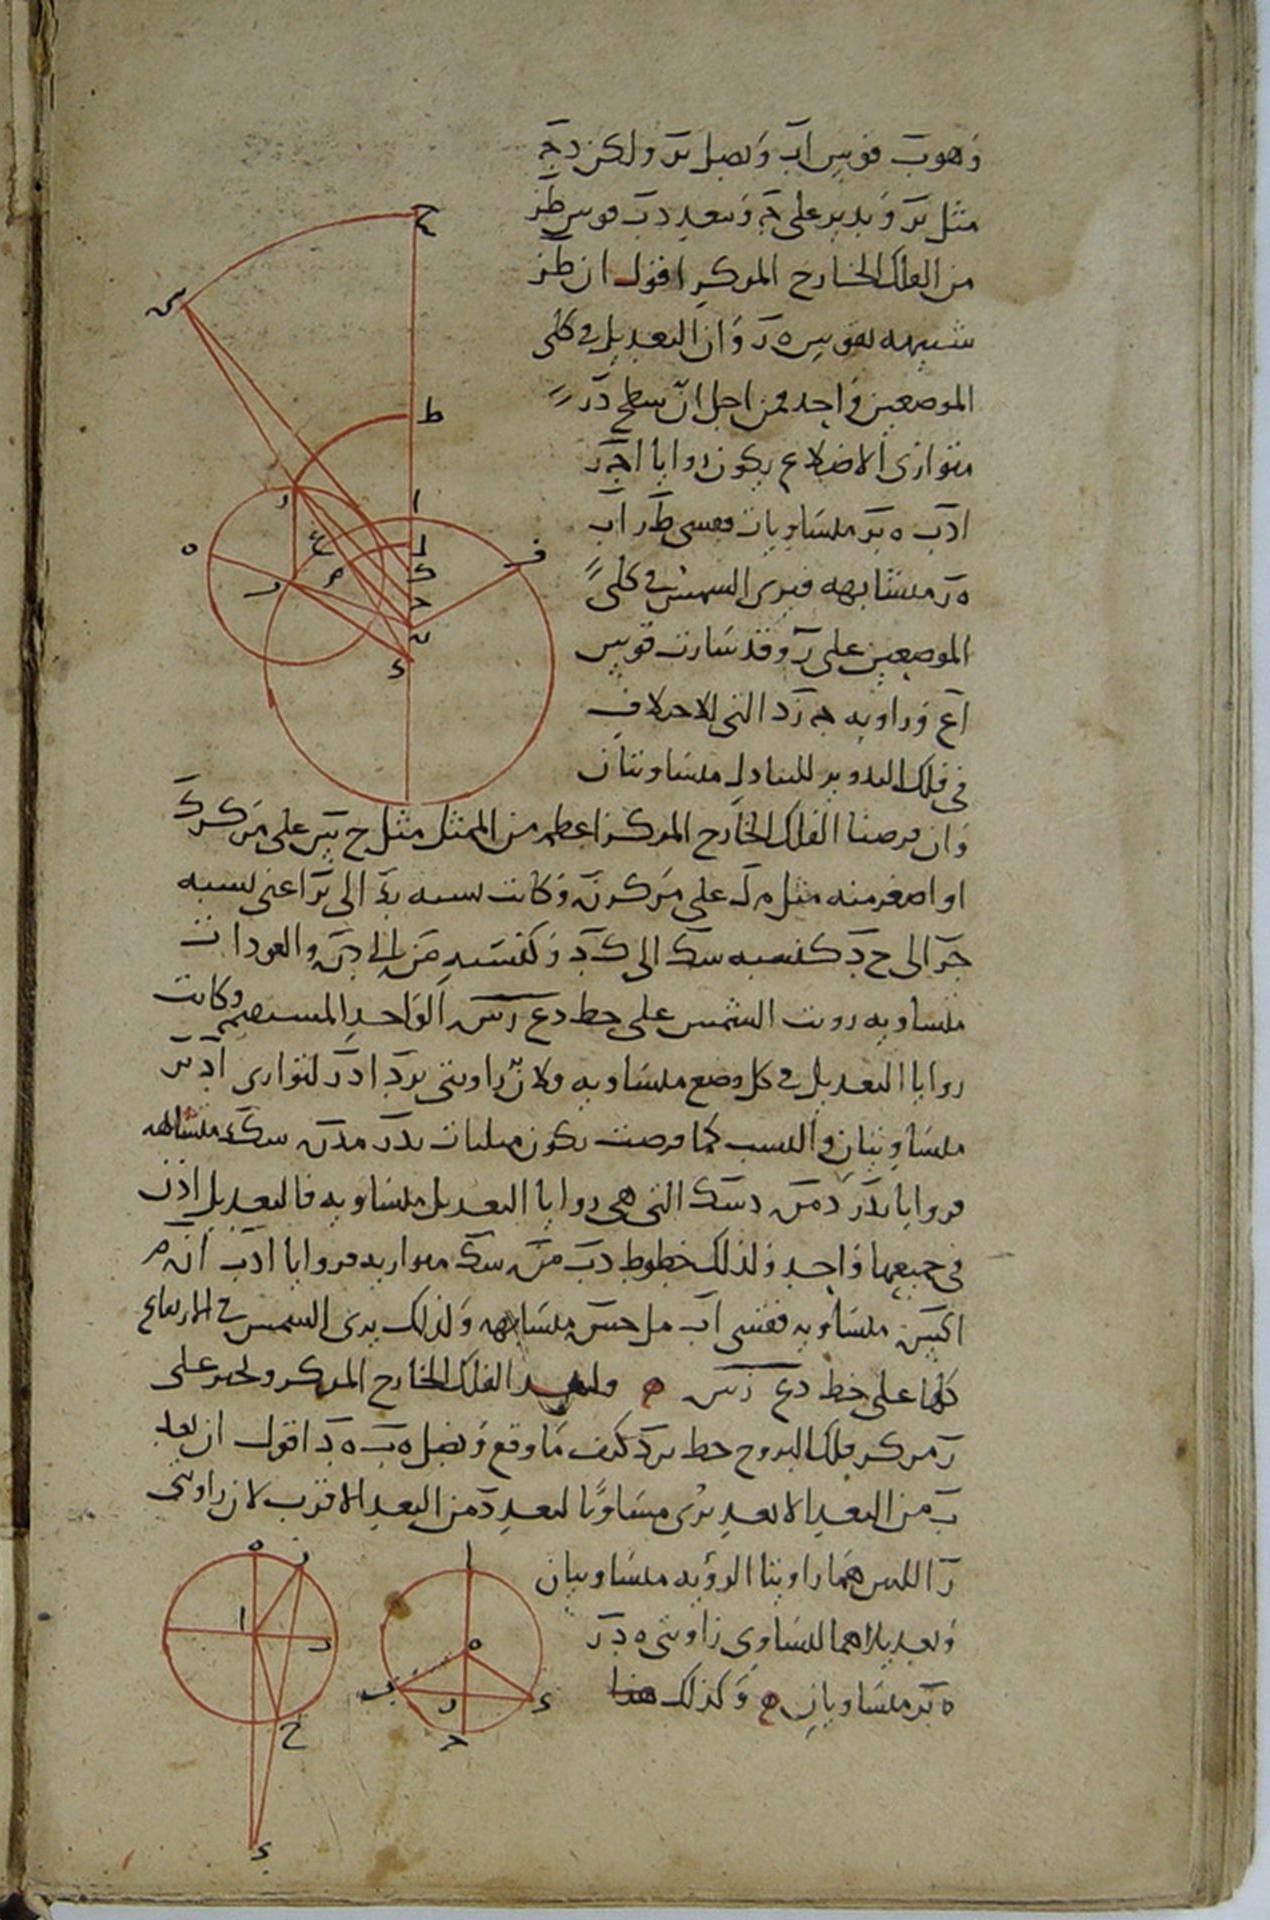 وهو ب قوس اب ونصل بر وليكن دج
مثل بر وندير على ج وببعد دب قوس طز
من الفلك الخارج المركز اقول ان طز
شبيهة بقوس ه ر وان التعديل في كلى
الموضعين واحد فمن اجل ان سطح دز
متوازي الاضلاع يكون زوايا اجر
ادب ه بر متساويات فقسى طر اب
ه ر متشابهة فيرى الشمس في كلى
الموضعين على ر وقد سارت قوس
اع وزاوية ج ر د التي للاختلاف
في فلك التدوير للتبادل متساويتان
وان فرضنا الفلك الخارج المركز اعظم من الممثل مثل ح س على مركز ك
او اصغر منه مثل م ل على مركز ن وكانت نسبة بد الى بر اعنى نسبة
جر الى جد كنسبة سك الى كد وكنسبة من الى دن والعودات
متساوية رويت الشمس على خط دع رس الواحد المستقيم وكانت
زوايا التعديل في كل وضع متساوية ولان زاويتي برد ادر لتوازى اد بر
متساويتان والنسب كما فرضت يكون مثلثات بدر مدن سكد متشابهة
فزوايا بدر دمن دسك التي هي زوايا التعديل متساوية فالتعديل اذن
في جميعها واحد ولذلك خطوط دب من سك متوازية فزوايا ادب ان م
اكس متساوية فقسى اب مل حس متشابهة ولذلك يرى الشمس في
كلها على خط دع رس الفلك الخارج المركز على
ر مركز فلك البروج خط برد كيف ما وقع ونصل ه ب ه د اقول ان بعد
ب من البعد الابعد يرى مساويا لبعد د من البعد الاقرب لان زاويتي
ر اللتين هما زاويتا الرؤية متساويتان
وتعديلاهما لتساوي زاويتي ه د ر
ه بر متساويان وكذلك هذا
ح
س
ط
ا
ر
ع
ل
ف
ه
ك
م
ر
ج
ن
د
ه
ر
ا
ح
د
ا
ه
ب
ر
د
ج